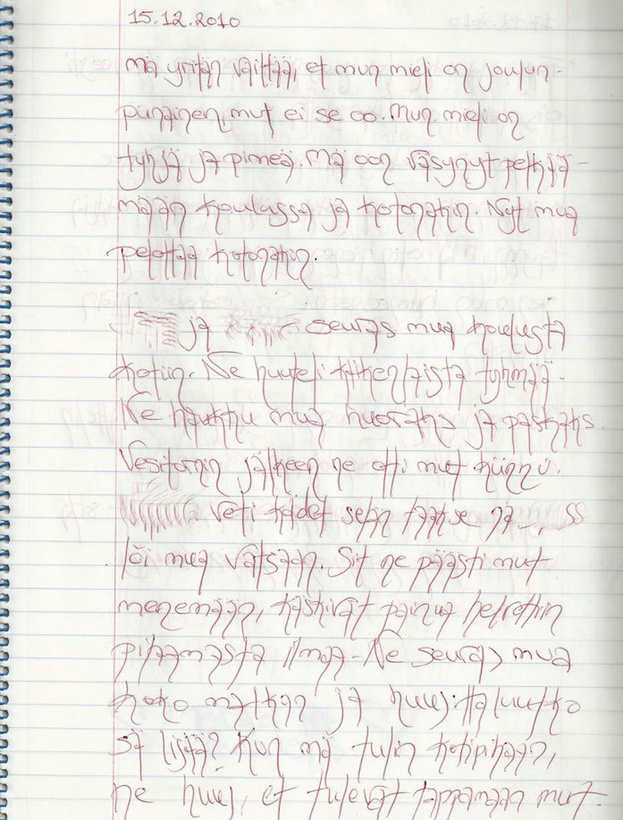 15.12.2010
mä yritän väittää, et mun mieli on joulun-
punainen, mut ei se oo. Mun mieli on
tyhjä ja pimeä. Mä oon väsynyt pelkää-
mään koulussa ja kotonakin. Nyt mua
pelottaa kotonakin.
ja seuras mua koulusta
kotiin. Ne huuteli kaikenlaista tyhmää.
Ne haukku mua huoraks ja paskaks.
Vesitornin jälkeen ne otti mut kiinni.
veti kädet selän taakse ja
löi mua vatsaan. Sit ne päästi mut
menemään, käskivät painua helvettiin
pilaamasta ilmaa. Ne seuras mua
koko matkan ja huusi: Haluutko
sä lisää? Kun mä tulin kotipihaan,
ne huusi, et tulevat tappamaan mut.